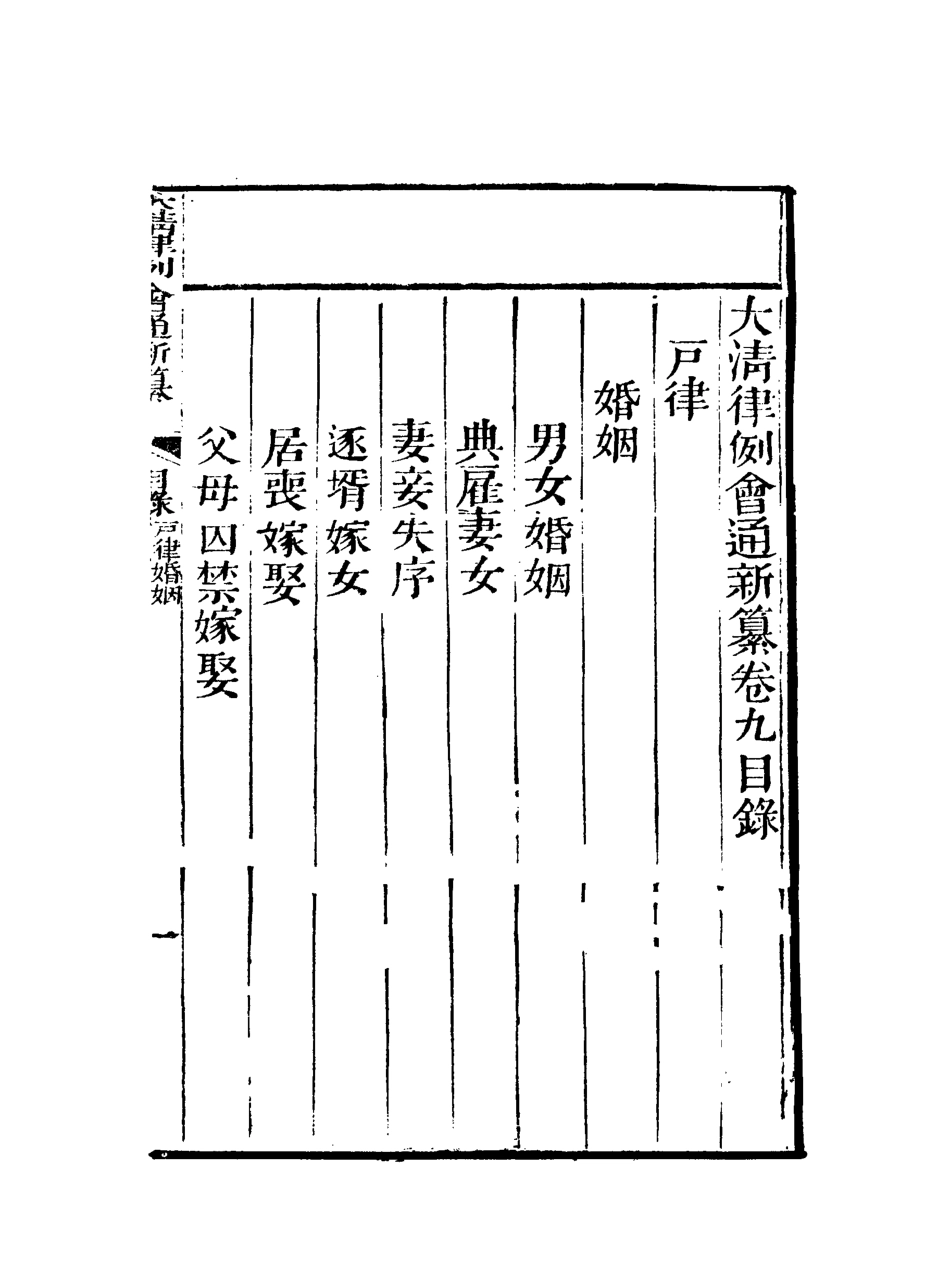 大淸律例會通新纂卷九目錄
戸律
婚姻
男女婚姻
典雇妻女
妻妾失序
逐壻嫁女
居喪嫁娶
父母囚禁嫁娶
大淸律例會通新纂
目錄戸律婚姻
一